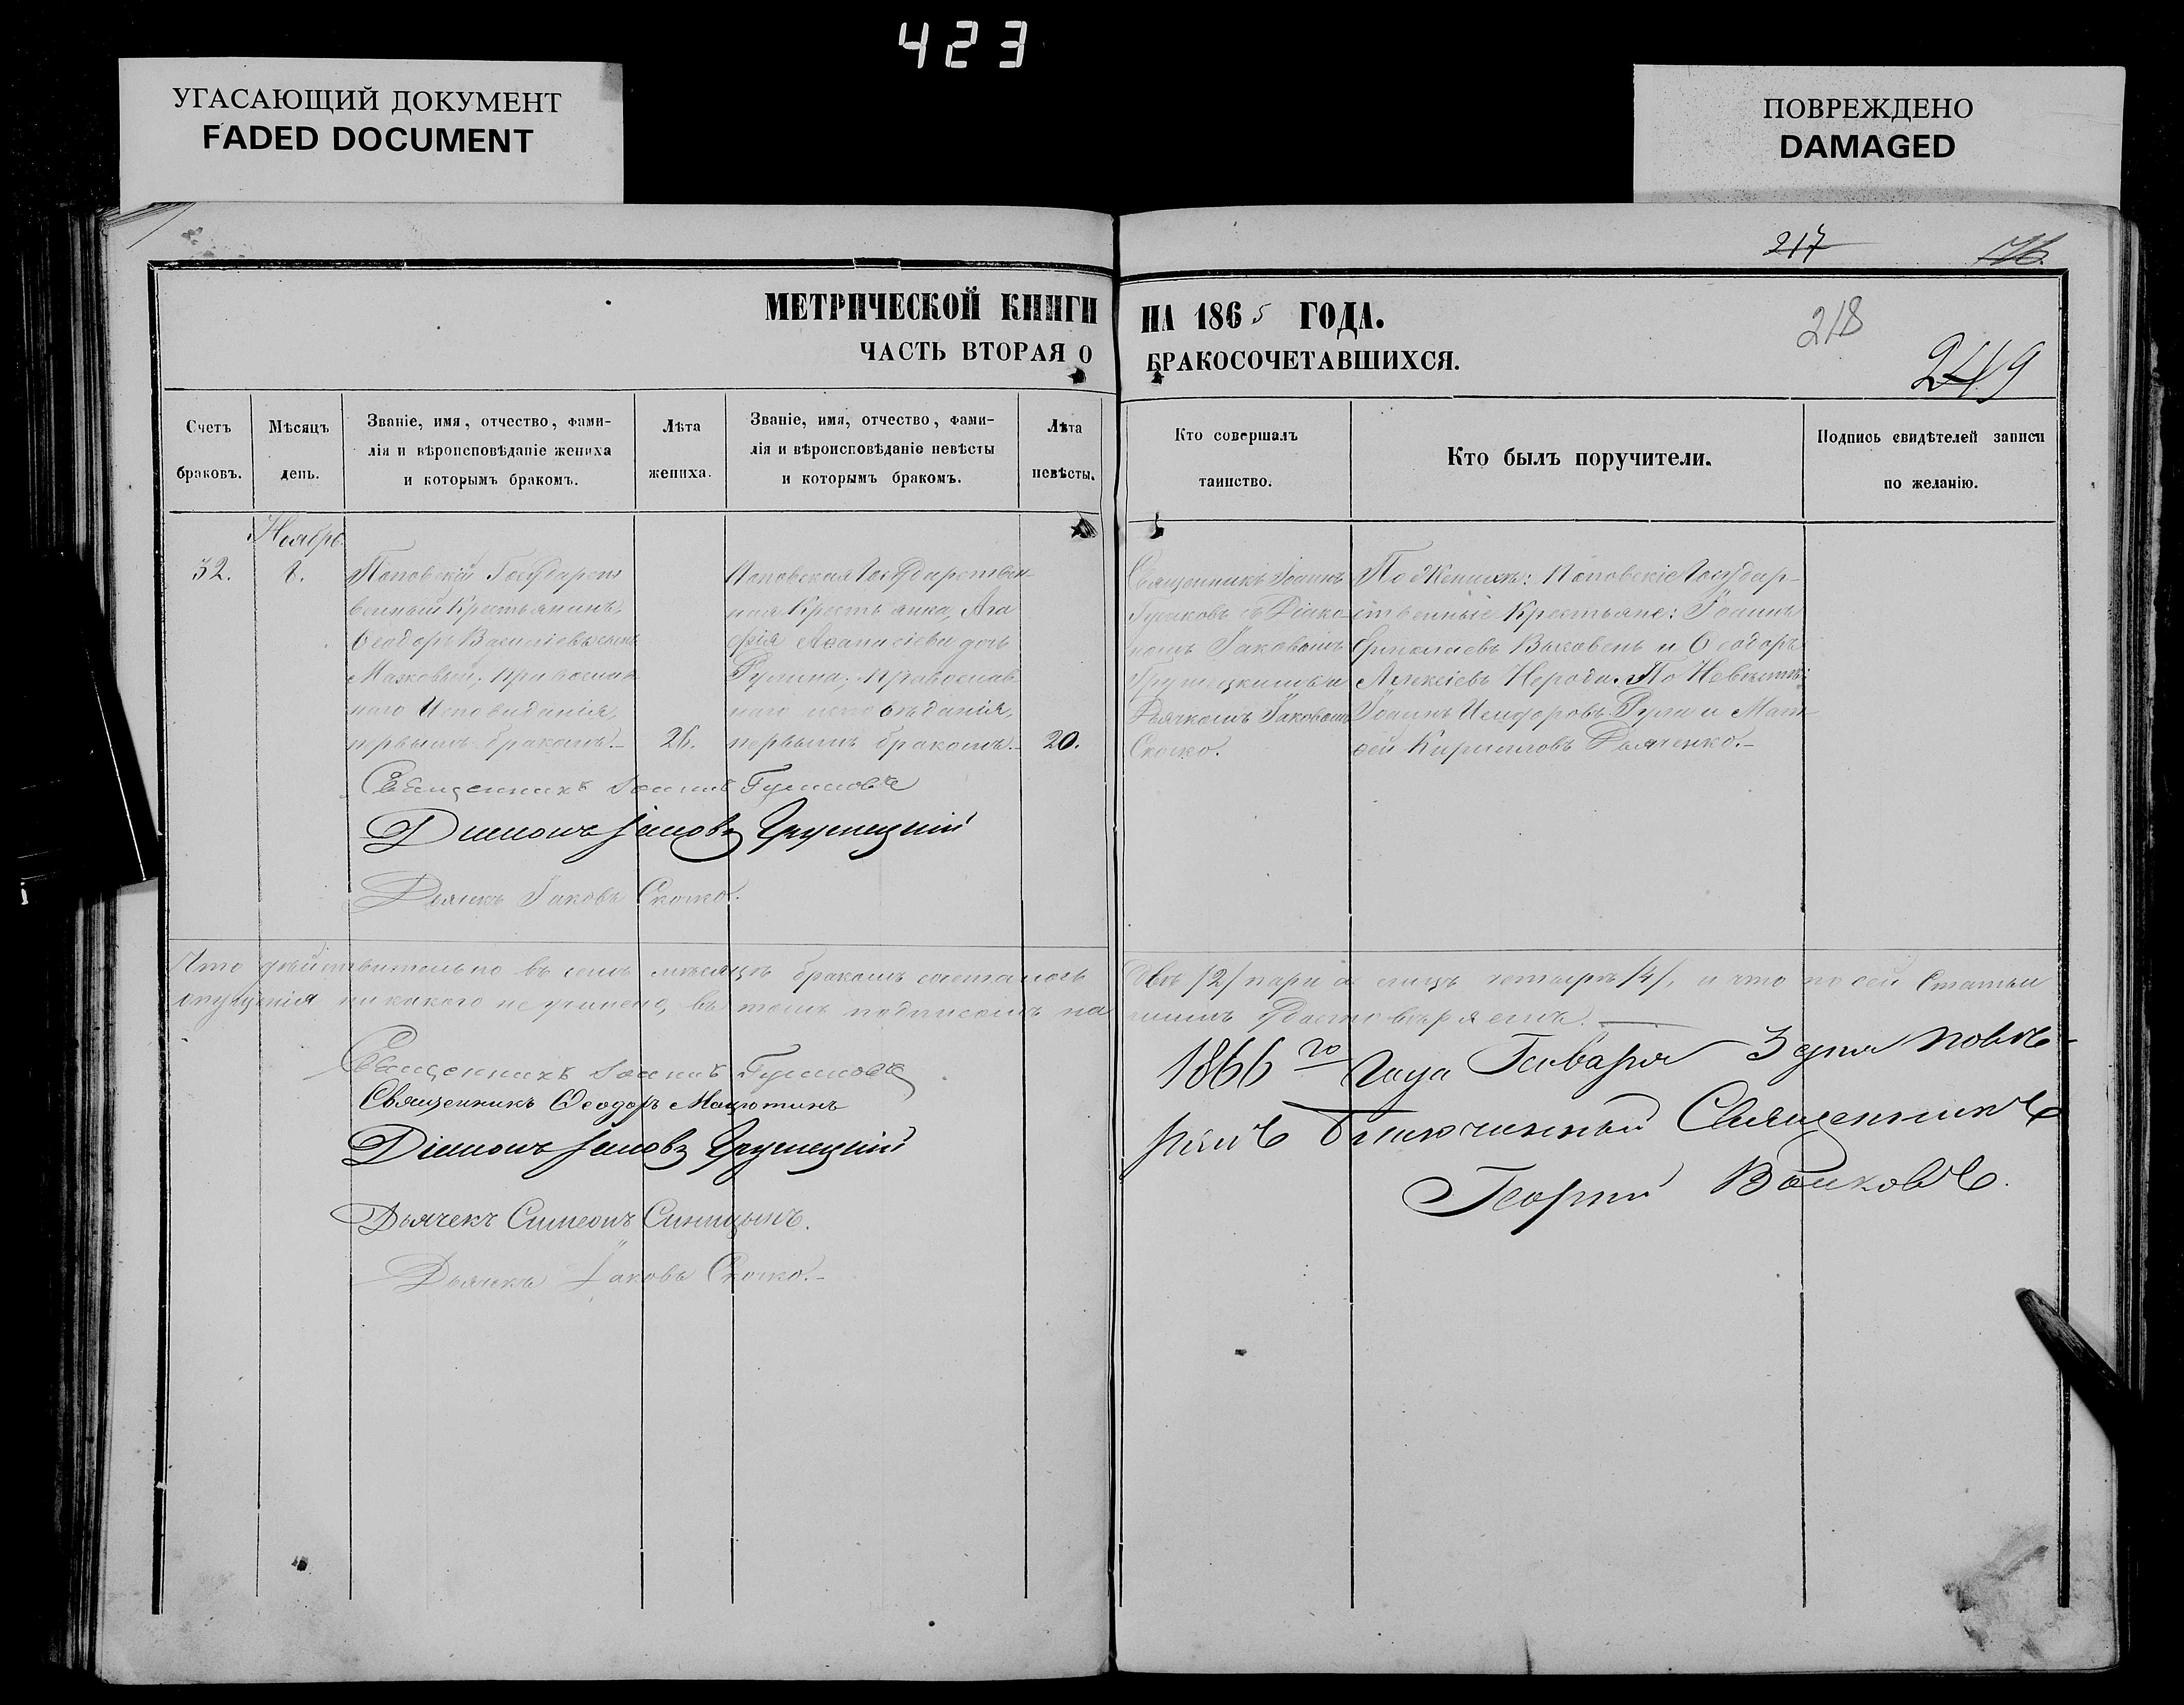 423
УГАСАЮЩИЙ ДОКУМЕНТ
FADED DOCUMENT
ПОВРЕЖДЕНО
DAMAGED
217
218
249
МЕТРИЧЕСКОЙ КНИГИ НА 1865 ГОДА.
ЧАСТЬ ВТОРАЯ О БРАКОСОЧЕТАВШИХСЯ.
Счетъ
браковъ.
Мѣсяцъ
день.
Званіе, имя, отчество, фами-
лія и вѣроисповѣданіе жениха
и которымъ бракомъ.
Лѣта
жениха.
Званіе, имя, отчество, фами-
лія и вѣроисповѣданіе невѣсты
и которымъ бракомъ.
Лѣта
невѣсты.
Кто совершалъ
таинство.
Кто былъ поручители.
Подпись свидѣтелей записи
по желанію.
32.
Ноябрь
8.
Поповскій Государст
венный Крестьянинъ,
Ѳеодоръ Василіевъ сынъ
Мазковый; православ
наго Исповиданія,
первымъ бракомъ.-
26.
Поповская Государствен-
ная Крестьянка, Ага
фія Аѳанасіева дочь
православ
наго исповѣданія,
первымъ бракомъ.-
20.
Священникъ Іоаннъ
съ Діако
номъ Іаковомъ
Грушецкимъ и
Дьячкомъ Іаковомъ
Скокко.
По Женихѣ: Поповскіе Государ-
ственные Крестьяне: Іоаннъ
и Ѳеодоръ
Алексіевъ Нерода. По Невѣстѣ:
Іоаннъ Исидоровъ и Мат
ѳей Кирилловъ Дьяченко.-
Священникъ Іоаннъ
Діаконъ Іаковъ Грушецкій
Дьячекъ Іаковъ Скокко.
Что дѣйствительно въ семъ мѣсяцѣ бракомъ сочеталось двѣ /2/ пары а лицъ четыре /4/, и что по сей Статьи
опущенія никакого не учинено, въ томъ подписомъ нашимъ Удостовѣряемъ.
Священникъ Іоаннъ
Священникъ Ѳеодоръ
Діаконъ Іаковъ Грушецкій
Дьячекъ Симеонъ Синицынъ.
Дьячекъ Іаковъ Скокко.-
1866го Года Генваря 3 дня повѣ-
рялъ Благочинный Священникъ
Георгій Волковъ.